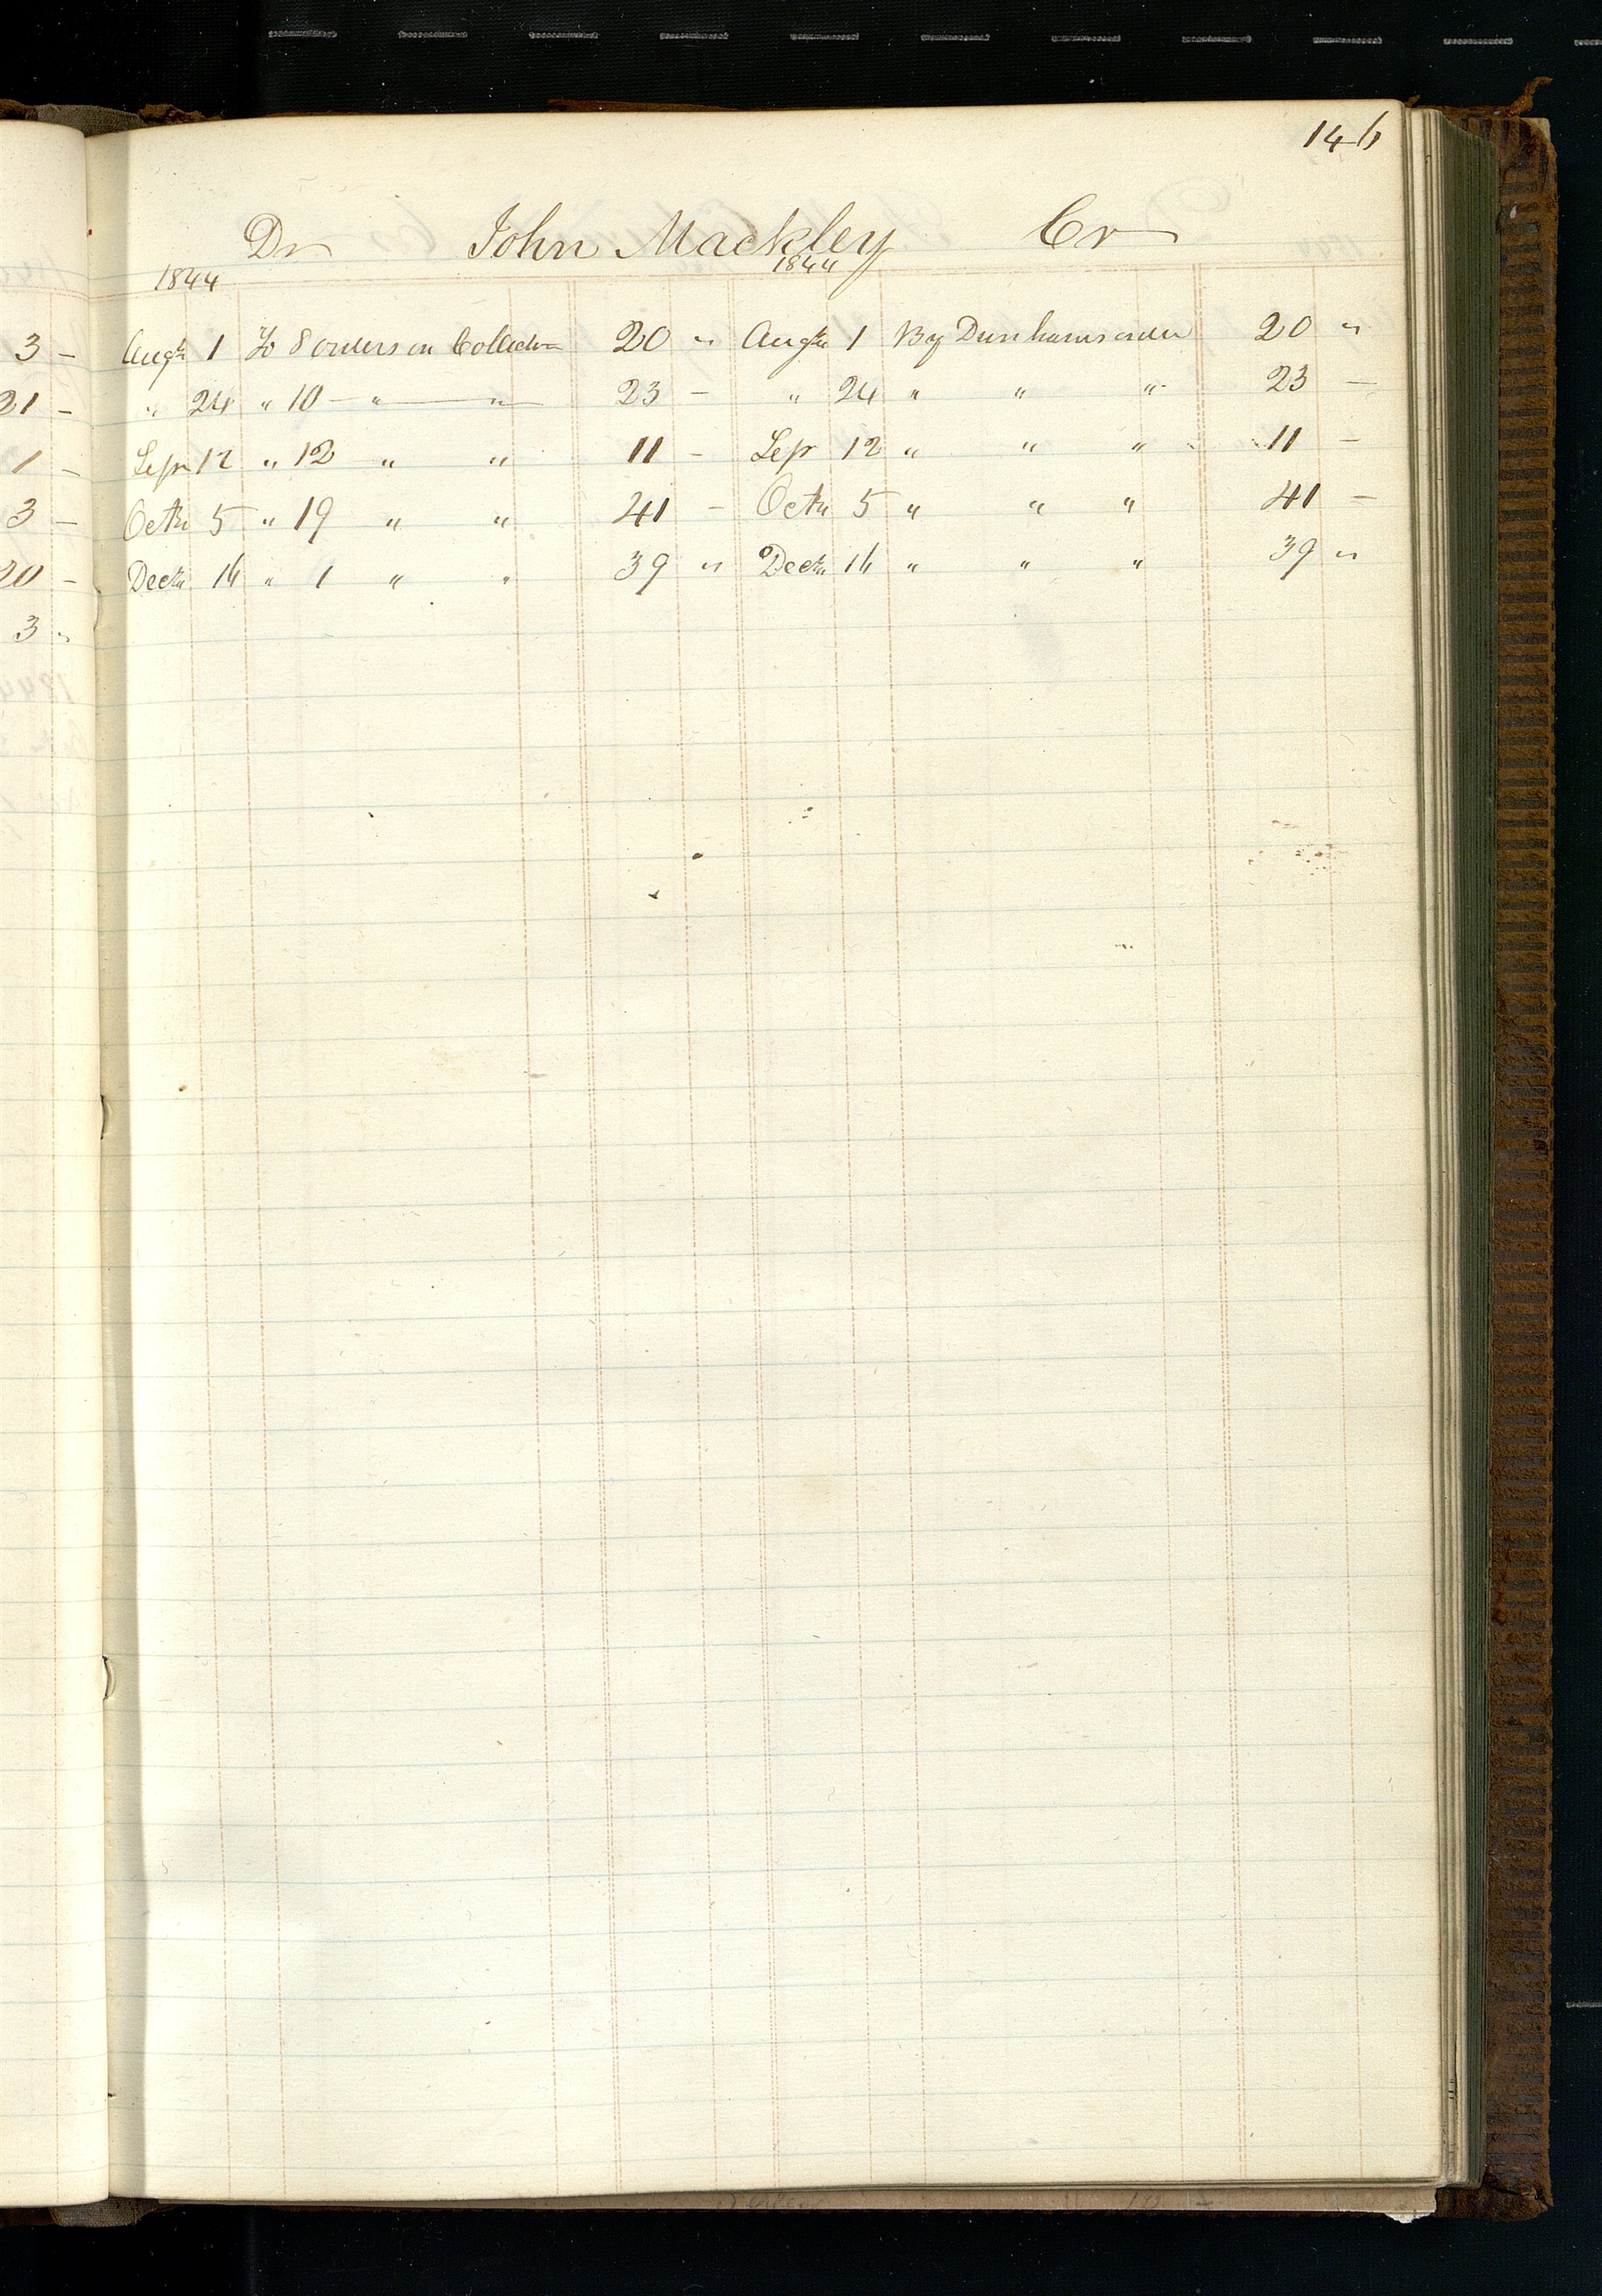 146
Dr John Mackley Cr
1844 1844
3 - Augt 1 To 8 orders on Collector 20 " Augt 1 By Dunhams order 20 "
21 - " 24 " 10 - " " 23 - " 24 " " " 23 -
1 - Sepr 12 " 12 " " 11 - Sepr 12 " " " 11 -
3 - Octr 5 " 19 " " 41 - Octr 5 " " " 41 -
20 - Decr 16 " 1 " " 39 " Decr 16 " " " 39 "
3 "